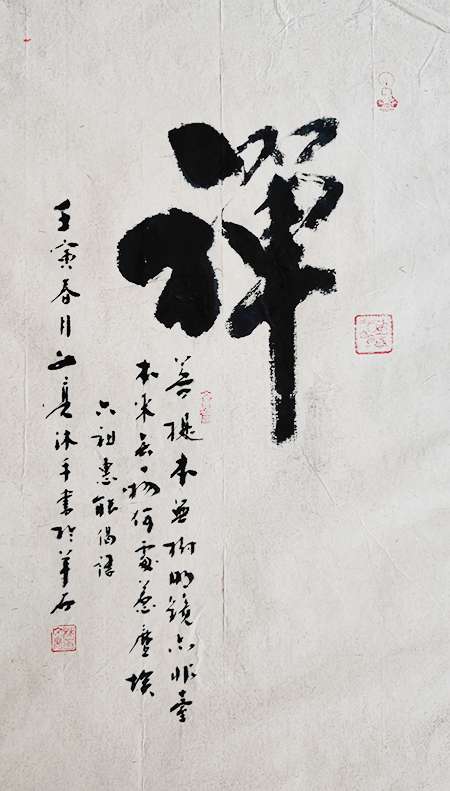 禪
菩提本無樹明鏡亦非臺
本来无一物何處惹塵埃
六祖惠能偈語
壬寅春月亮沐手書於羊石